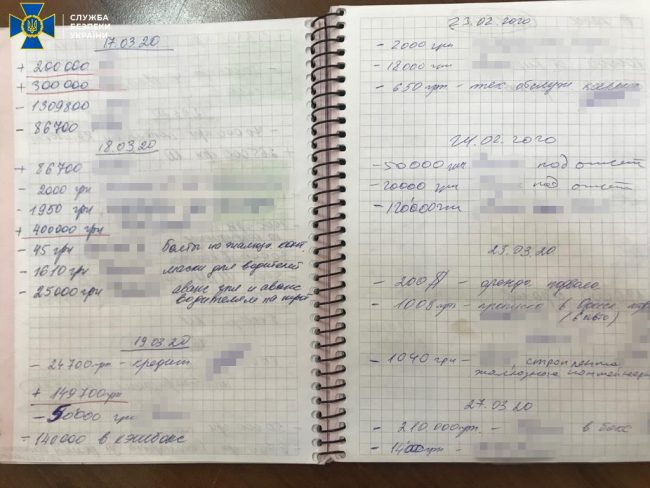 СЛУЖБА
БЕЗПЕКИ
УКРАЇНИ
17.03.20
+ 200 000
+ 300 000
- 1309800
- 86700
18.03.20
+ 86700
- 2000 грн
- 1950 грн
+ 400000 грн
- 45 грн болты
- 1610 грн маски для водителей
- 25000 грн аванс зпл и аванс
водителям на
19.03.20
- 24700 грн - кредит
+ 149700 грн
- 50000 грн
- 140000 в кэшбокс
23.02.2020
- 2000 грн
- 18000 грн
- 650 грн - тех обслуж
24.02.2020
- 50000 грн под отчет
- 20000 грн под отчет
- 120000 грн
25.03.20
- 200 $ - аренда подвала
- 1008 грн - в
- 1040 грн -
27.03.20
- 210.000 грн. - в бокс
- 1400 грн -